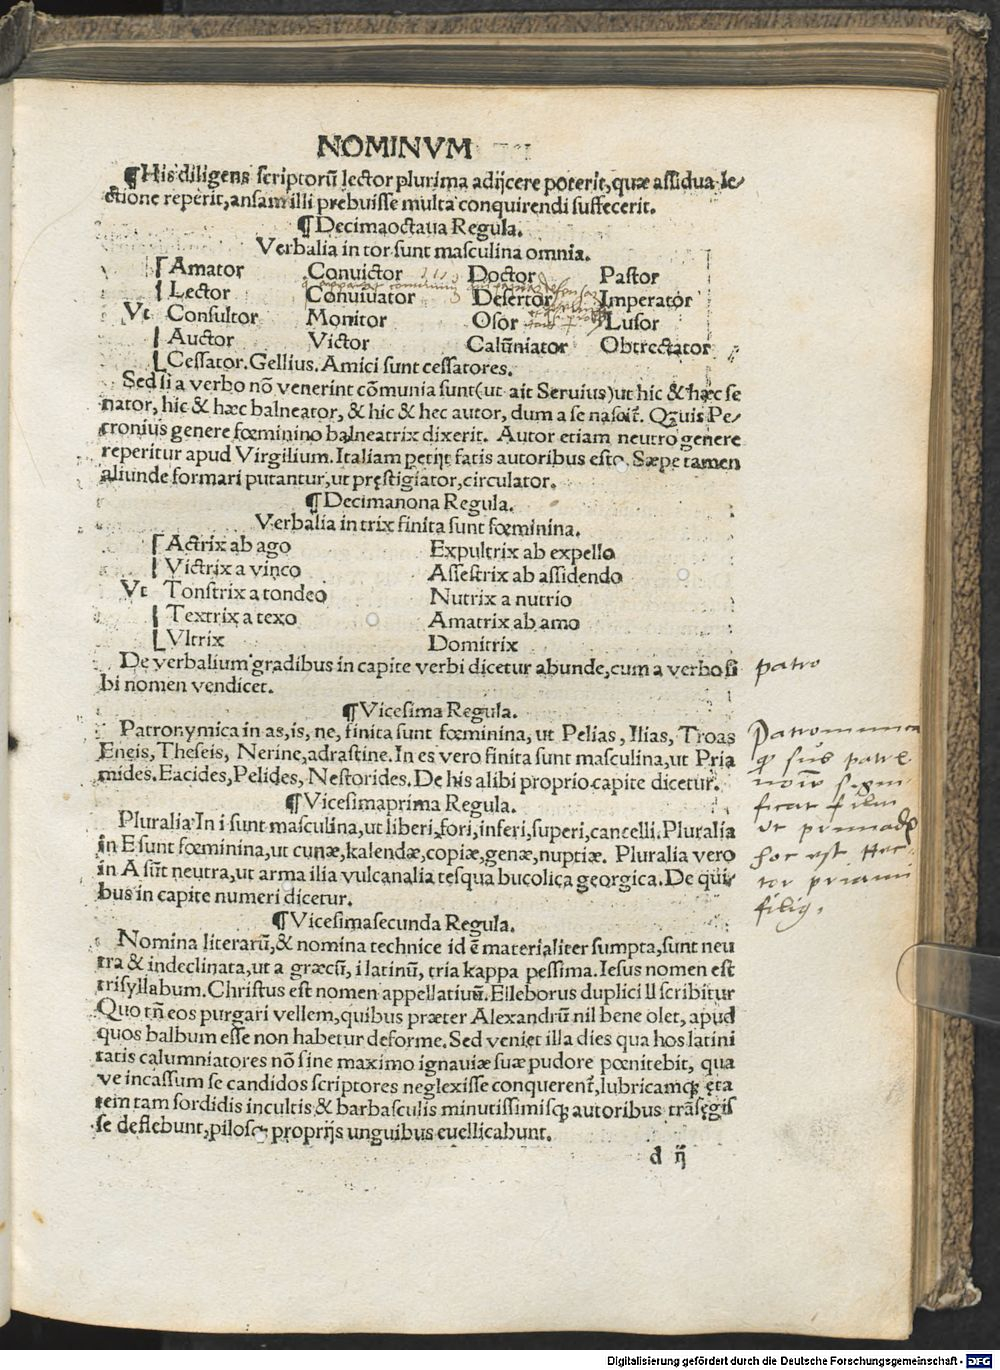 NOMINVM
¶His diligens scriptorũ lector plurima adijcere poterit, quæ assidua le/
ctione reperit, ansam illi prebuisse multa conquirendi suffecerit.
¶Decimaoctaua Regula.
Verbalia in tor sunt masculina omnia.
Amator Conuictor Doctor Pastor
Lector Conuiuator Desertor Imperator
Vt Consultor Monitor Osor Lusor
Auctor Victor Calũniator Obtrectator
Cessator. Gellius. Amici sunt cessatores.
Sed si a verbo nõ venerint cõmunia sunt (ut ait Seruius) ut hic & hæc se
nator, hic & hæc balneator, & hic & hec autor, dum a se nascit̃. Qzuis Pe/
tronius genere fœminino balneatrix dixerit. Autor etiam neutro genere
reperitur apud Virgilium. Italiam petijt fatis autoribus esto. Sæpe tamen
aliunde formari putantur, ut pręstigiator, circulator.
¶Decimanona Regula.
Verbalia in trix finita sunt fœminina.
Actrix ab ago Expultrix ab expello
Victrix a vinco Assestrix ab assidendo
Vt Tonstrix a tondeo Nutrix a nutrio
Textrix a texo Amatrix ab amo
Vltrix Domitrix
De verbalium gradibus in capite verbi dicetur abunde, cum a verbo si
bi nomen vendicet.
patro
¶Vicesima Regula.
Patronymica in as, is, ne, finita sunt fœminina, ut Pelias, Ilias, Troas
Eneis, Theseis, Nerine, adrastine. In es vero finita sunt masculina, ut Pria
mides. Eacides, Pelides, Nestorides. De his alibi proprio capite dicetur.
¶Vicesimaprima Regula.
Pluralia In i sunt masculina, ut liberi, fori, inferi, superi, cancelli. Pluralia
in E sunt fœminina, ut cunæ, kalendæ, copiæ, genæ, nuptiæ. Pluralia vero
in A sũt neutra, ut arma ilia vulcanalia tesqua bucolica georgica. De qui/
bus in capite numeri dicetur.
hoc est Hec
tor priami
¶Vicesimasecunda Regula.
Nomina literarũ, & nomina technice id ẽ materialiter sumpta, sunt neu
tra & indeclinata, ut a græcũ, i latinũ, tria kappa pessima. Iesus nomen est
trisyllabum. Christus est nomen appellatiuũ. Elleborus duplici ll scribitur
Quo tñ eos purgari vellem, quibus præter Alexandrũ nil bene olet, apud
quos balbum esse non habetur deforme. Sed veniet illa dies qua hos latini
tatis calumniatores nõ sine maximo ignauiæ suæ pudore pœnitebit, qua
ve incassum se candidos scriptores neglexisse conquerent̃, lubricamqꝫ ęta
tem tam sordidis incultis & barbasculis minutissimisqꝫ autoribus trãsęgis
se deflebunt, pilosqꝫ proprijs unguibus euellicabunt.
d ij
Digitalisierung gefördert durch die Deutsche Forschungsgemeinschaft - DFG